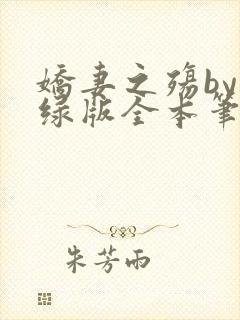 嬌妻之殤by
绿版全本筆
朱芳雨